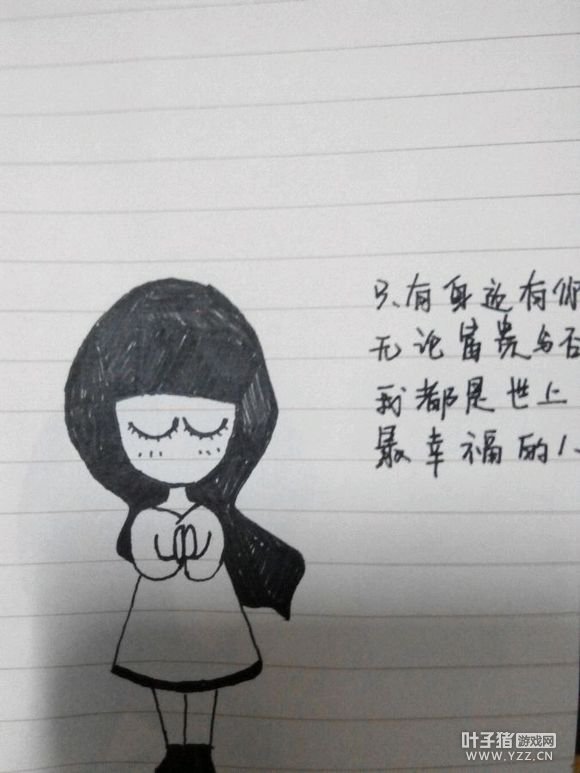 只有身边有你
无论富贵与否
我都是世上
最幸福的人
叶子猪游戏网
WWW.YZZ.CN